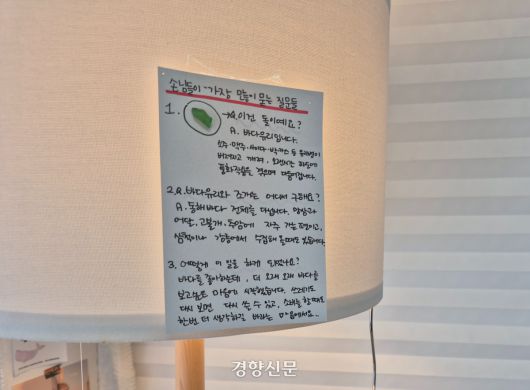 손님들이 가장 많이 묻는 질문들
1. →Q. 이건 돌이예요?
A. 바다유리입니다.
소주·맥주·사이다·박카스 등 유리병이
버려지고 깨져, 오랜시간 파도에
풍화작용을 겪으며 다듬어집니다.
2. Q. 바다유리와 조개는 어디서 구해요?
A. 동해바다 전체를 다닙니다.
어달, 고불개, 추암에 자주 가는 편이고,
삼척이나 강릉에서 수집해 올때도 있습니다.
3. 어떻게 이 일을 하게 되었나요?
바다를 좋아하는데, 더 오래 오래 바다를
보고싶은 마음에 시작했습니다. 쓰레기도
다시 보면 다시 쓸 수 있고, 소비를 할 때도
한번 더 생각하길 바라는 마음에서요..
경향신문